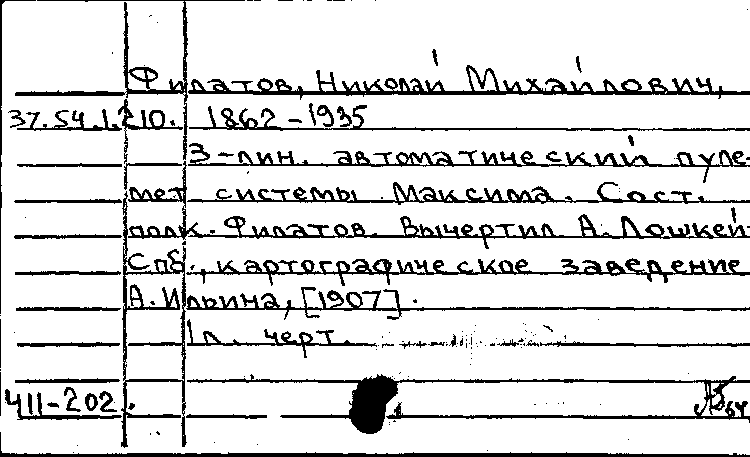 Филатов, Николай Михайлович,
37.54.1.210. 1862-1935
3-лин. автоматический пуле-
мет системы Максима. Сост.
полк. Филатов. Вычертил А. Лошкей
Спб., картографическое заведение
А. Ильина, [1907].
1 л. черт.
411-202.